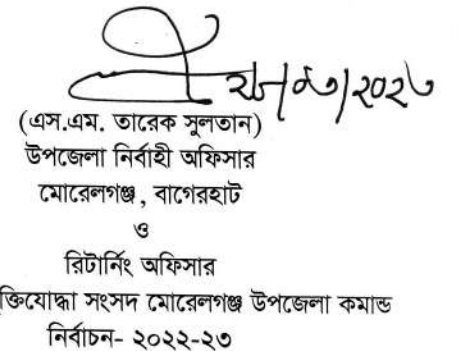 (এস.এম. তারেক সুলতান)
উপজেলা নির্বাহী অফিসার
মোরেলগঞ্জ, বাগেরহাট
ও
রিটার্নিং অফিসার
ক্তিযোদ্ধা সংসদ মোরেলগঞ্জ উপজেলা কমান্ড
নির্বাচন- ২০২২-২৩